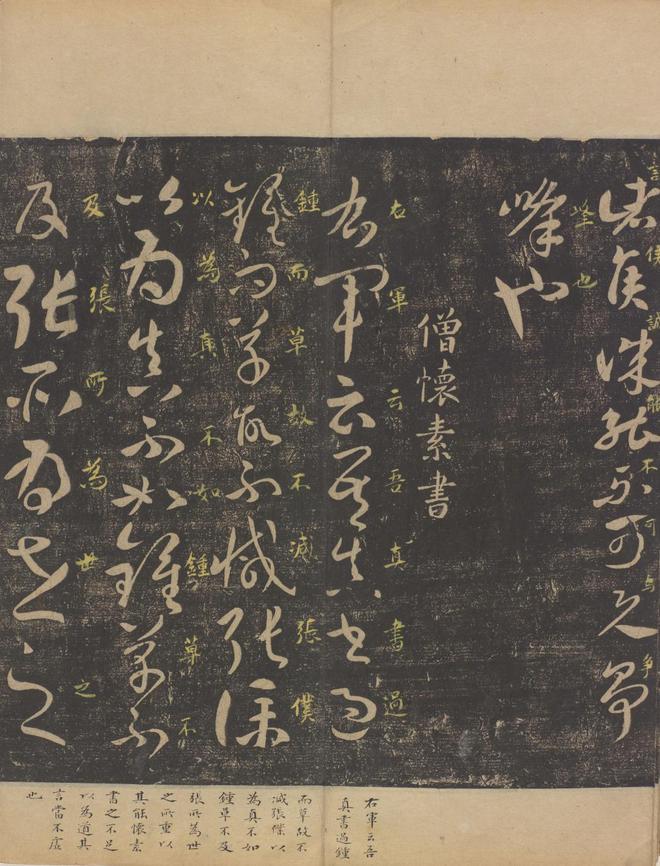 侯誠能不可与争
諸侯誠能不可與爭
峰也
峰也
僧懷素書
右軍云吾真書過
右軍云吾真書過
鍾而草故不減張僕
鍾而草故不減張僕
以為真不如鍾草不
以為真不如鍾草不
及張所為世之
及張所為世之
右軍云吾
真書過鍾
而草故不
減張僕以
為真不如
鍾草不及
張所為世
之所重以
其能懷素
書之不足
以為道其
言當不虛
也